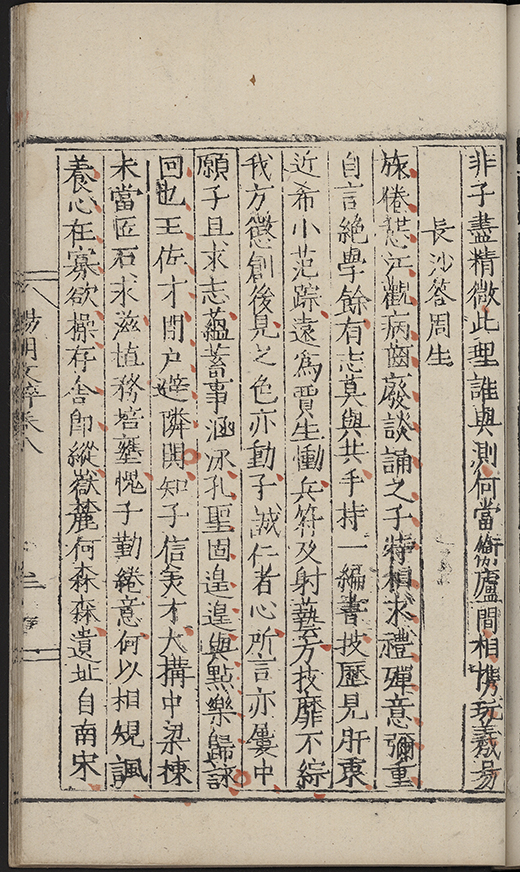 非子盡精微此理誰與測何當衡廬間相携玩羲易
長沙答周生
旅倦憩江觀病齒廢談誦之子特相求禮殫意彌重
自言絕學餘有志莫與共手持一編書披歷見肝衷
近希小范踪遠爲賈生慟兵符及射藝方技靡不綜
我方懲創後見之色亦動子誠仁者心所言亦屢中
願子且求志蘊蓄事涵泳孔聖固遑遑與點樂歸詠
回也王佐才閉户避隣閧知子信美才大搆中梁棟
未當匠石求滋植務培壅愧子勤綣意何以相規諷
養心在寡欲操存舍即縱嶽麓何森森遺址自南宋
陽明文粹卷八